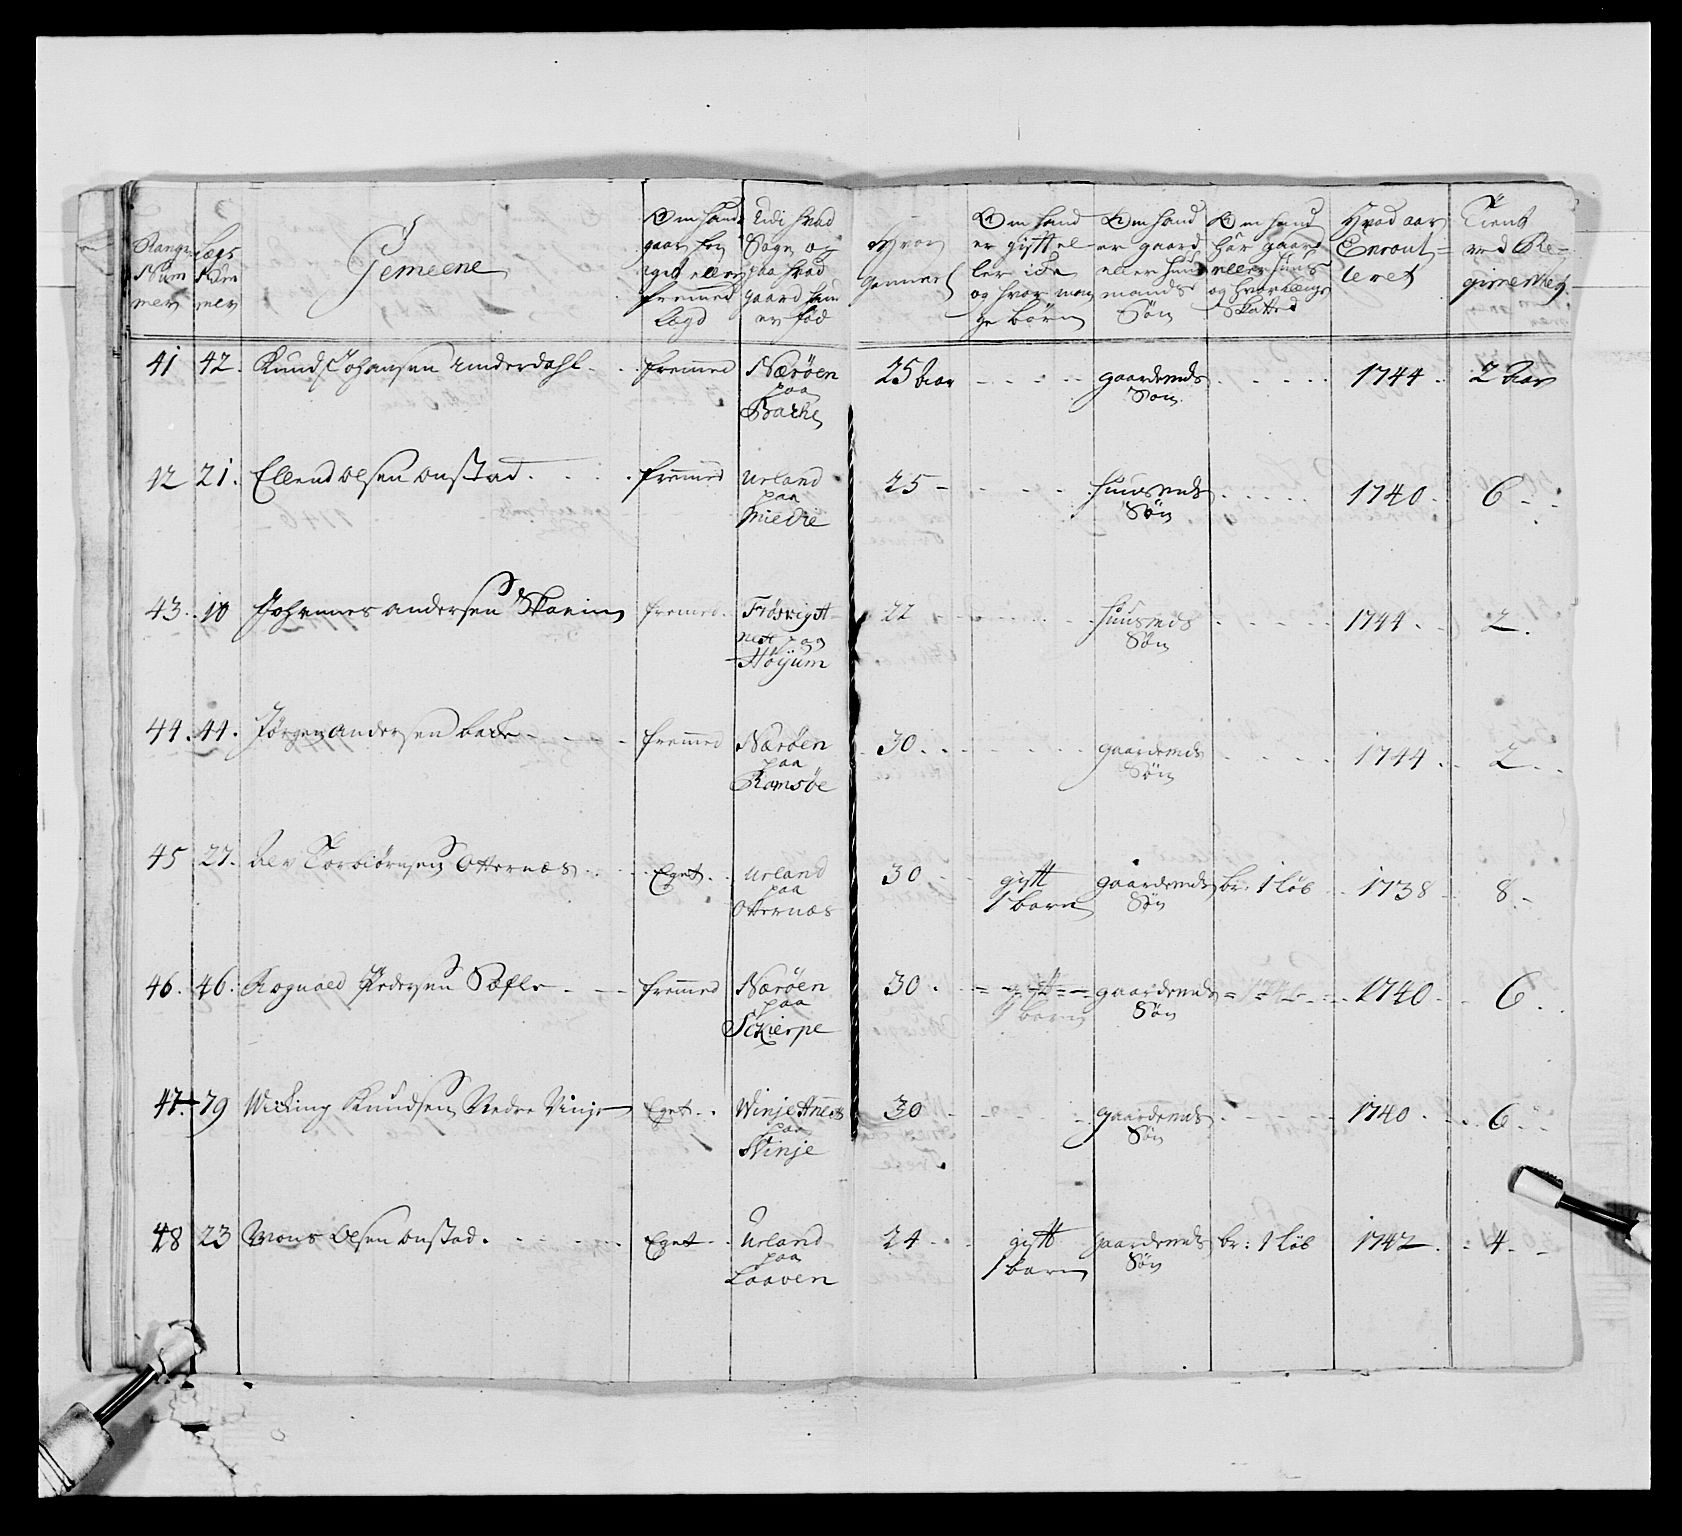 Rangs Num mer
Lægs Num mer
Gemeene
Om hand gaar for eget eller fremmed Lægd
Udi hvad Sogn og paa hvad gaard hand er fød
Hvor gammel
Om hand er gifft el- ler icke og hvor man ge børn
Om hand er gaard eller huus mands Søn
Om hand har gaard eller huus og hvor længe Skatted
Hvad aar Enroul- leret
Tient ved Re- gimentet
41 42. Knud Johansen Underdahl. fremed Nærøen paa Backe 25 aar gaardmds Søn 1744. 2 aar
12 21. Ellend Olsen Onstad. fremed Urland paa 25 huusmds Søn 1740 6
43. 10 Johannes Andersen fremed Frøsvigtt nest paa Høyum 22 huusmds Søn 1744. 2.
44. 44. Jørgen Andersen Backe fremed Nærøen paa Ramsøe 30. gaardmds Søn 1744. 2.
45 27. Torbiørnsen Otternæs Eget Urland paa Otternæs 30 gifft 1 barn gaardmds Søn br: 1 løb 1738 8
46. 46. Rognald Pedersen fremed Nærøen paa Sckierpe 30. gaardmds Søn 1740 6
47. 79 Wicking Knudsen Nedre Vinje Eget Winje Annex paa Winje 30 gaardmds Søn 1740. 6
48 23 Mons Olsen Onstad. Eget Urland paa Laaven 24 gifft 1 barn gaardmds Søn br: 1 løb 1742. 4